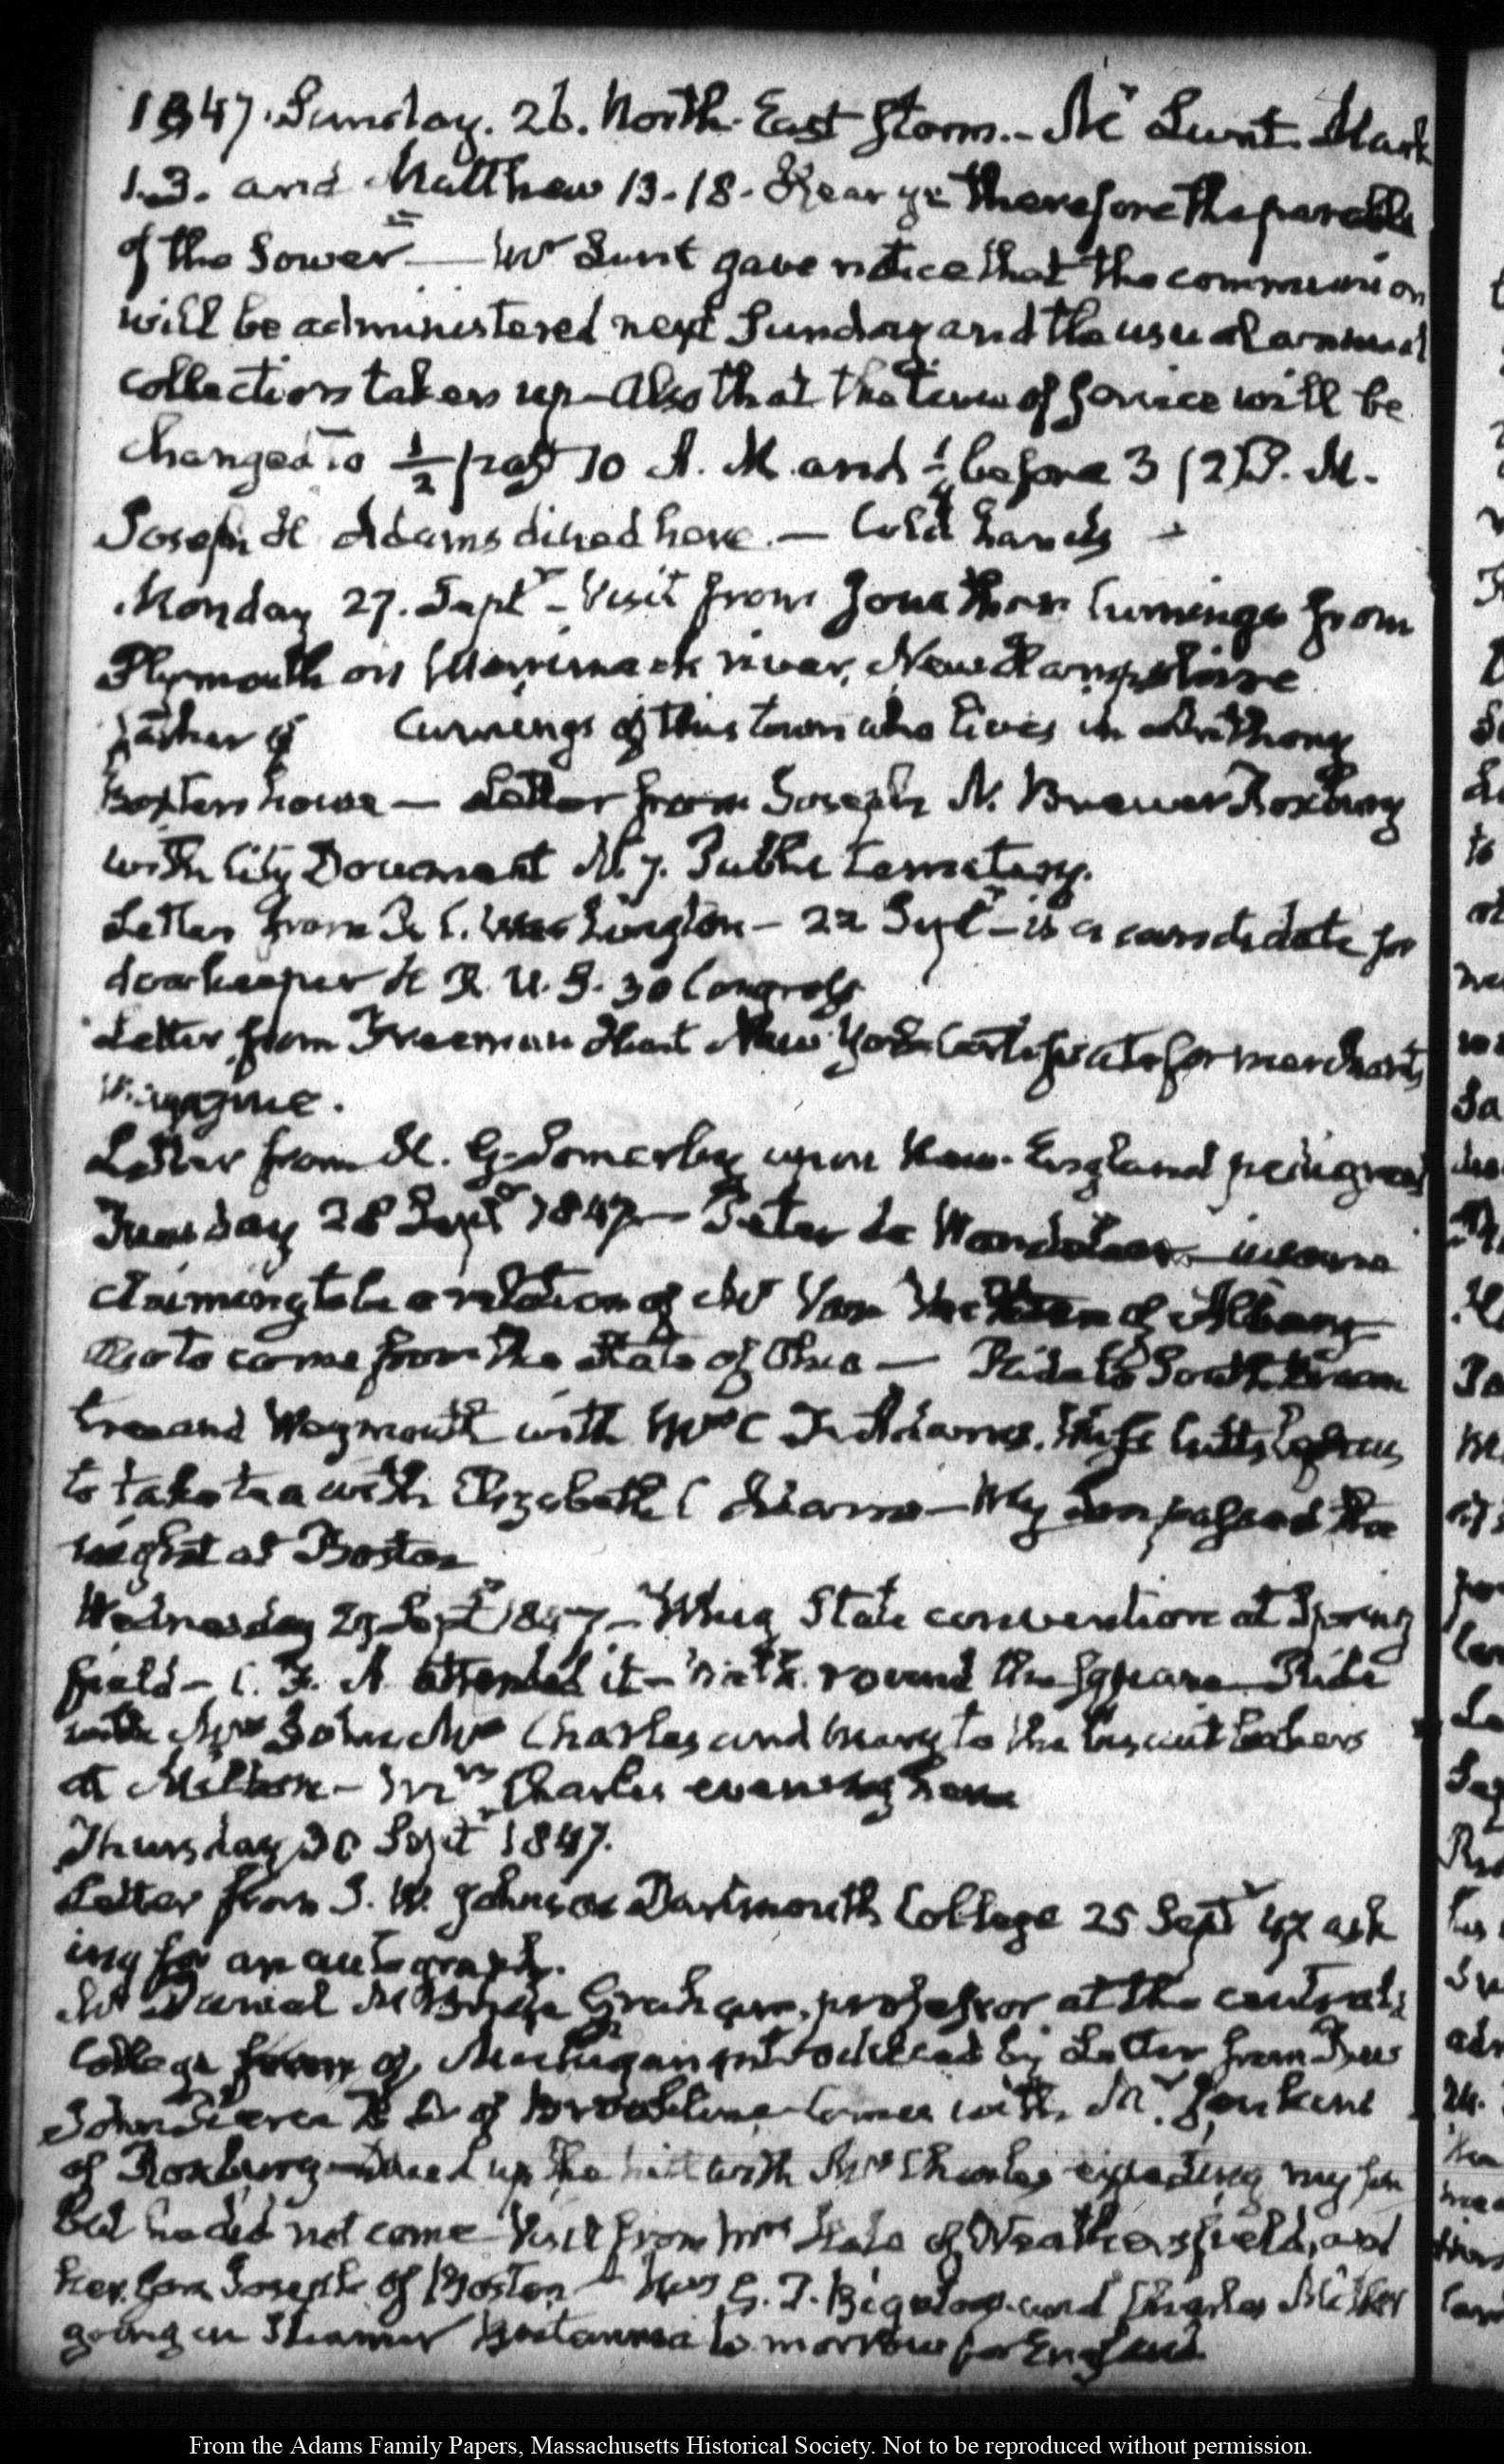 1847. Sunday. 26. North-East Storm.- Mr Lunt. Mark
1.3. and Matthew 13.18. Hear ye therefore the parable
of the Sower — Mr Lunt gave notice that the communion
will be administered next Sunday and the usual annual
collection taken up - Also that the time of service will be
changed to ½ past 10 A. M. and before 3 (2) P. M.
Joseph H Adams dined here. — Cold hands
Monday 27. Septr - Visit from Jonathan Cumings from
Plymouth on Merrimack river, New Hampshire
father of Cumings of this town who lives in Anthony
Baxters house — Letter from Joseph N. Brewer Roxbury
with City Document N. 7. Public Cemetery.
Letter from Washington - 22 Septr - is a candidate for
doorkeeper H R. U. S. 30 Congress
Letter from Freeman Hunt New York Certificate for merchants
Magazine.
Letter from H. G. Somerby upon New-England pedigrees
Tuesday 28 Septr 1847 - Peter de insane
claiming to be a relation of Mr Van of Albany
Also to come from the State of Ohio — Ride to South Brain
tree and Weymouth with Mrs C F. Adams.
to take tea with Elizabeth C Adams - My Son passed the
night at Boston
Wednesday 29 Septr 1847 - Whig State convention at Spring
field - C. F. A attended it - round the Square - Ride
with Mrs John Mrs Charles and Mary to the biscuit bakers
at Milton - Mrs Charles evening here
Thursday 30 Septr 1847.
Letter from J. W. Johnson Dartmouth College 25 Septr 47 ask
ing for an autograph.
Mr Daniel McBride Graham, professor at the central
College of Michigan introduced by Letter from Revd
John Pierce of Brookline - Came with Mr Jenkins
of Roxbury - Dined up the hill with Mrs Charles expecting my son
but he did not come - Visit from Mrs Hale of Weathersfield, and
her son Joseph of Boston - G. T. Bigelow and Charles
going in Steamer Britannia to morrow for England.
From the Adams Family Papers, Massachusetts Historical Society. Not to be reproduced without permission.